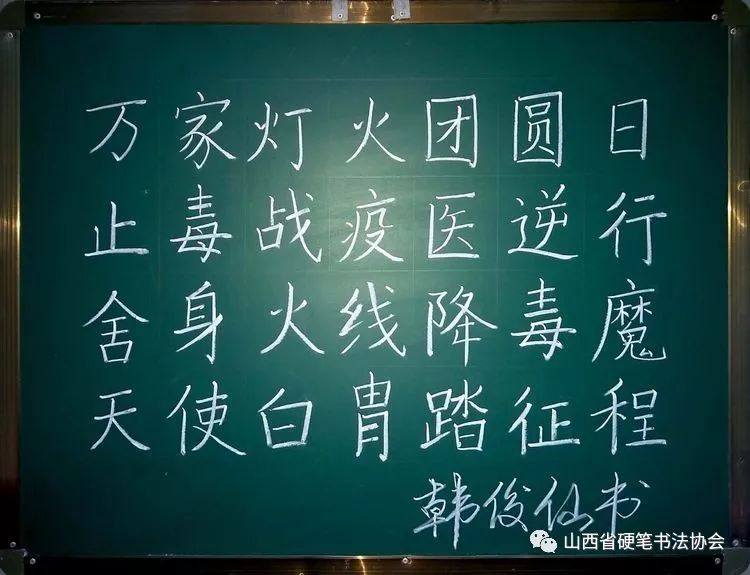 万家灯火团圆日
止毒战疫医逆行
舍身火线降毒魔
天使白胄踏征程
韩俊仙书
山西省硬笔书法协会